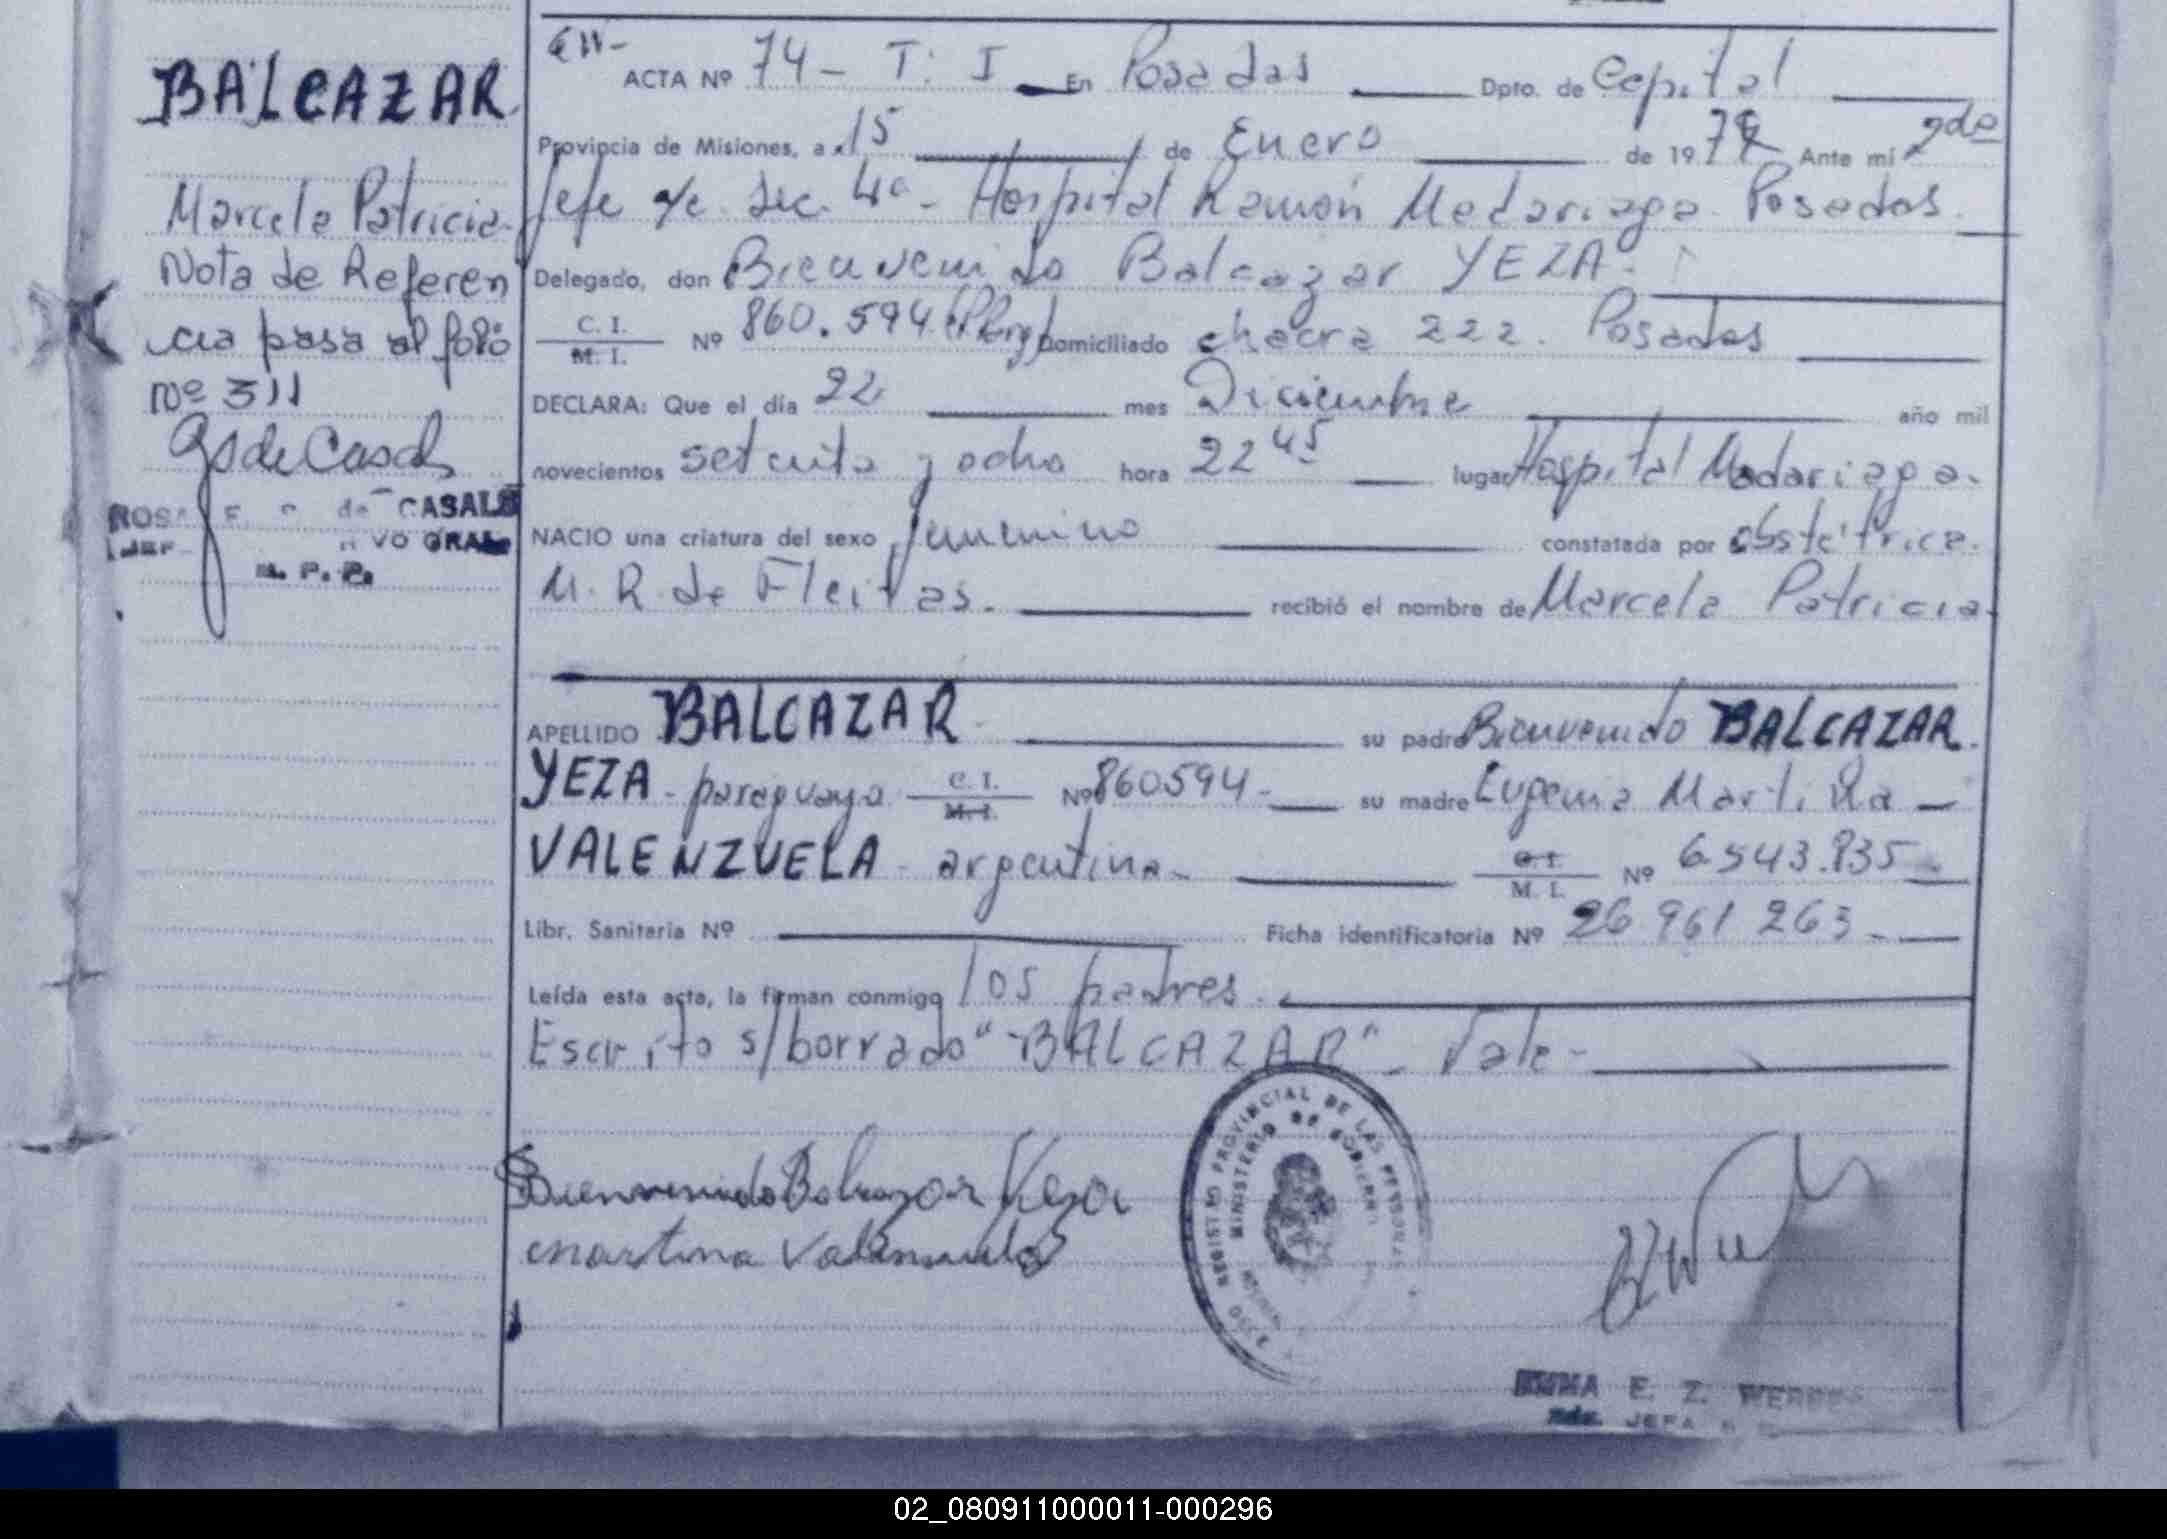 BALCAZAR
Marcela Patricia.
Nota de Referen
cia pasa al folio
Nº 311
CASALS
M. P. P.
ACTA Nº 74 - T: I En Posadas Dpto. de Capital
Provincia de Misiones, a 15 de Enero de 19 Ante mí 2da
Jefe Sec. 4ª - Hospital Ramón Madariaga. Posadas.
Delegado, don Bienvenido Balcazar YEZA -
C. I. M. I. Nº 860.594 Domiciliado chacra 222. Posadas
DECLARA: Que el día 22 mes Diciembre año mil
novecientos setenta y ocho hora 22 45 lugar Hospital Madariaga.
NACIO una criatura del sexo femenino constatada por obstétrica.
M. R. de Fleitas. recibió el nombre de Marcela Patricia.
APELLIDO BALCAZAR su padre Bienvenido BALCAZAR.
YEZA - paraguayo C. I. M. I. Nº 860594 - su madre Eugenia Martina
VALENZUELA - argentina - C. I. M. I. Nº 6.543.835 -
Libr. Sanitaria Nº Ficha identificatoria Nº 26 961 263 -
Leída esta acta, la firman conmigo los padres.
Escrito s/borrado "BALCAZAR" - Vale -
Bienvenido Balcazar Yeza
Martina Valenzuela
REGISTRO PROVINCIAL DE LAS PERSONAS
MINISTERIO DE GOBIERNO
E. Z.
2da. JEFA
02_080911000011-000296